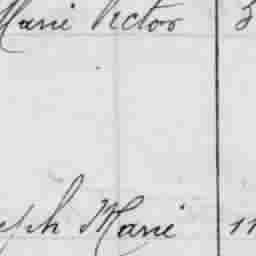 Marie Victor 3
eph Marie 11